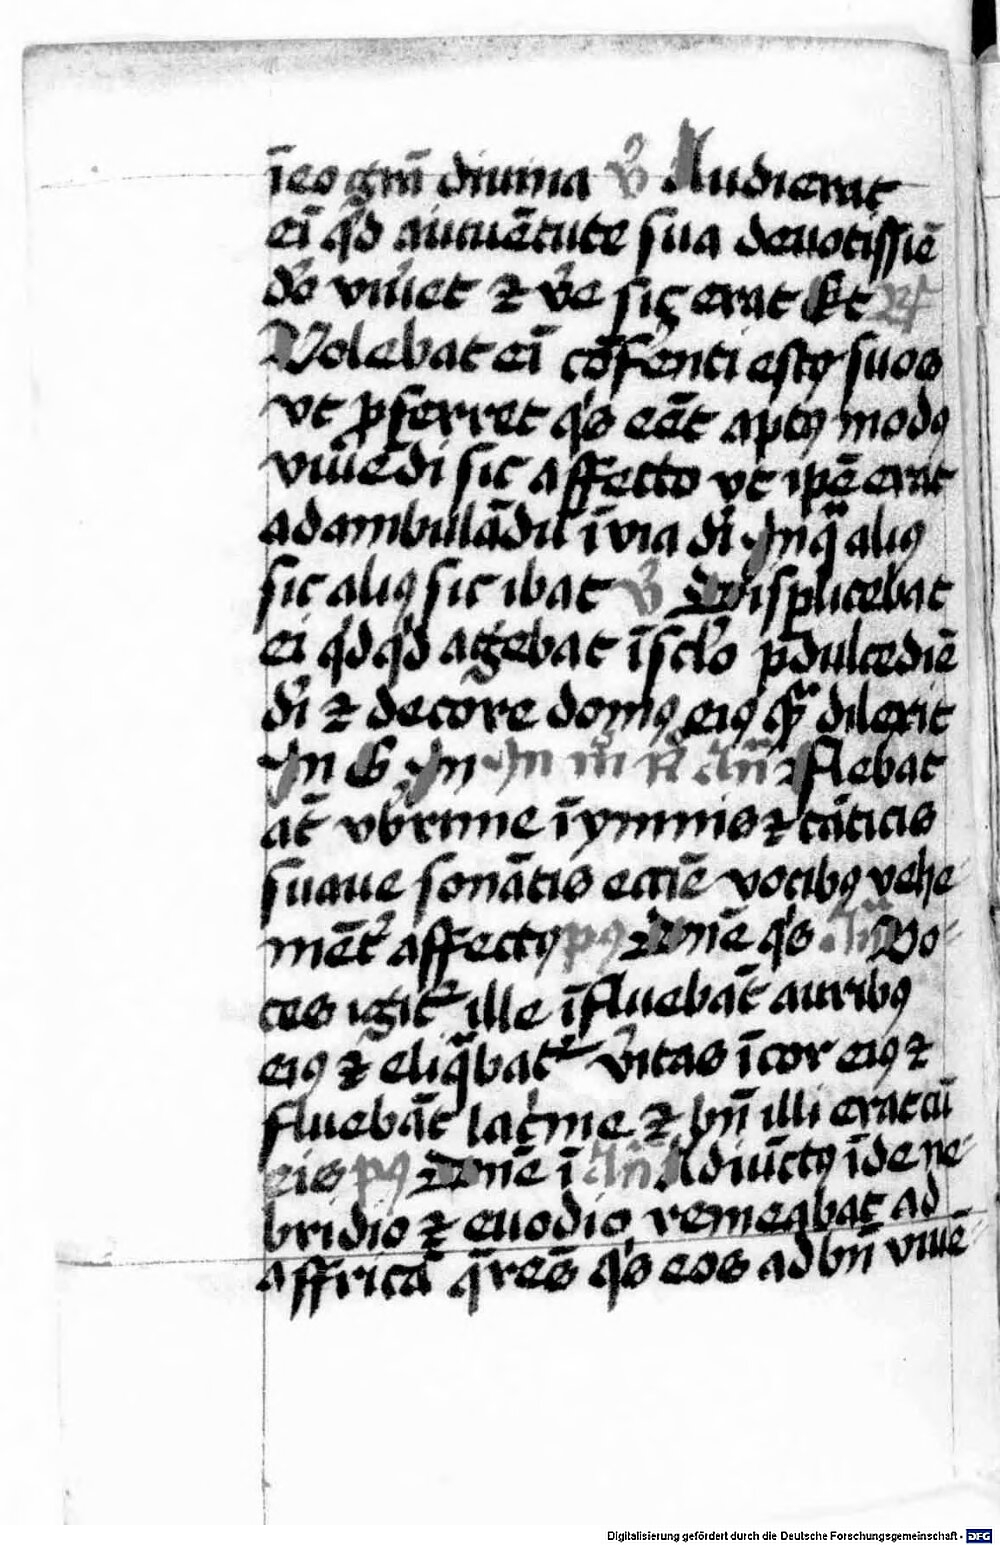 īeo grā diuina v̉ Audierat
eī qd aiuuētute sua deuotissiē
do viuet ⁊ ve͛ sic erat Et R͛
Volebat eī cōferenti est⁹ suos
vt ꝓferret qs eēt apt⁹ mod⁹
viuēdi sic affecto vt ipē erat
ad ambulādū ī via di In qͣ ali⁹
sic ali⁹ sic ibat v̉ Displicebat
ei qdqd agebat ī sclo p̄ dulcediē
di ⁊ decore dom⁹ ei⁹ qͣ dilexit
In E In In iii n̄ an̄ Flebat
at̄ vbrime ī ymnis ⁊ cāticis
suaue sonātis eccīe vocib⁹ vehe
mēt͛ affect⁹ p⁹ Dn̄e qs an̄ Vo-
ces igit͛ ille īfluebāt aurib⁹
ei⁹ ⁊ eliqͣbat͛ v͛itas ī cor ei⁹ ⁊
fluebāt lac͛me ⁊ bn̄ illi erat cū
eis p⁹ Dn̄e ī an̄ Adiūct⁹ īde ne-
bridio ⁊ euodio remeabat ad
affricā qͣrēs qs eos ad bn̄ viuē-
Digitalisierung gefördert durch die Deutsche Forschungsgemeinschaft - DFG